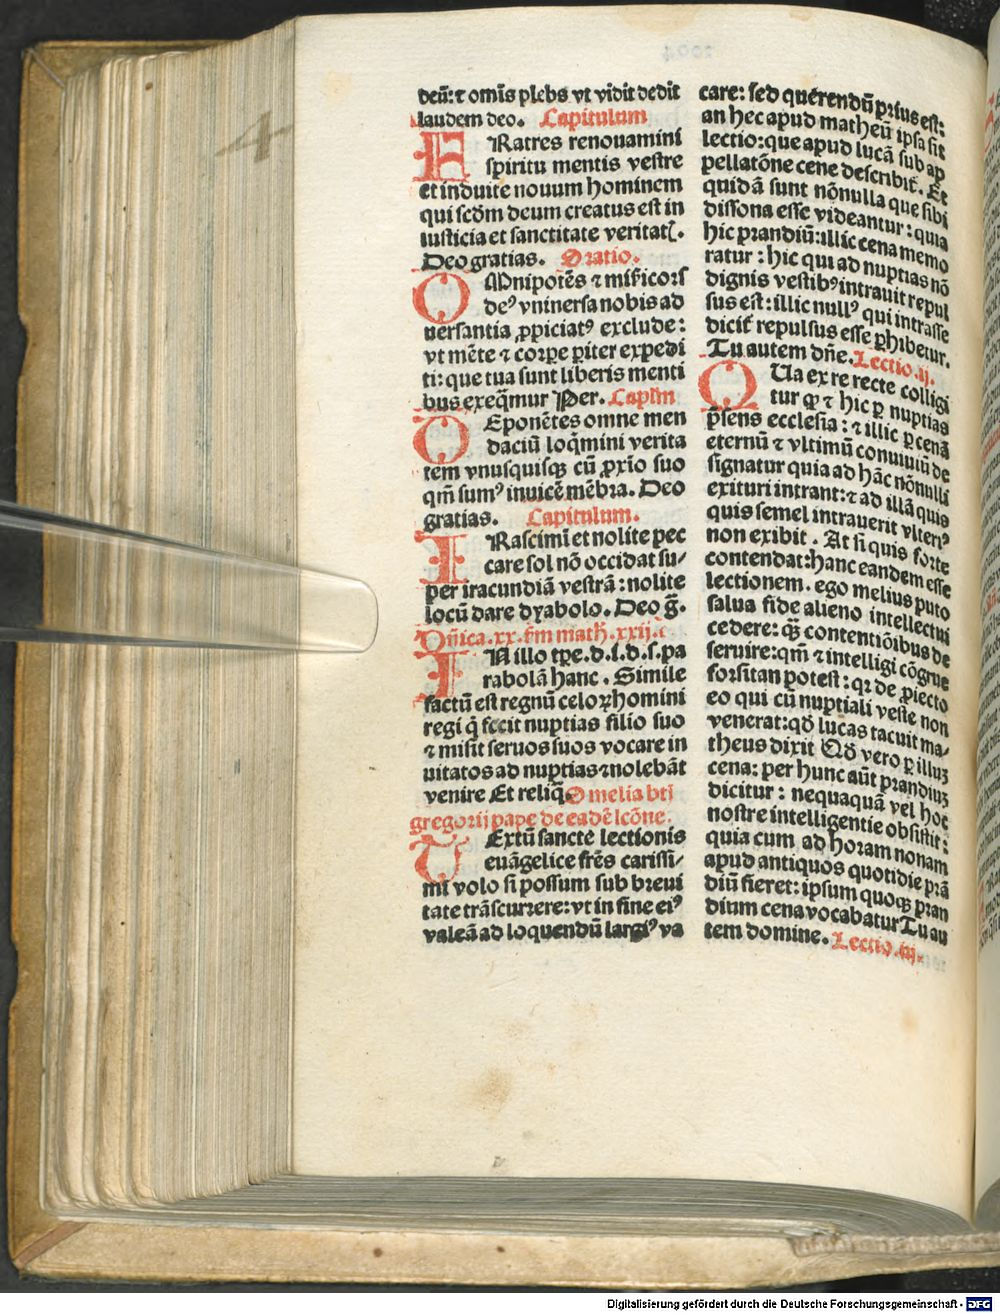 deū: ⁊ omīs plebs vt vidit dedit
laudem deo. Capitulum
FRatres renouamini
spiritu mentis vestre
et induite nouum hominem
qui scdm deum creatus est in
iusticia et sanctitate veritatꝭ.
Deo gratias. Oratio.
OMnipotēs ⁊ mīsricors
deꝰ vniuersa nobis ad
uersantia ꝓpiciatꝰ exclude:
vt mēte ⁊ corpe piter expedi
ti: que tua sunt liberis menti
bus exeq̄mur Per. Caplm
DEponētes omne men
daciū loq̄mini verita
tem vnusquisqꝫ cū ꝓxīo suo
qm̄ sumꝰ inuicē mēbra. Deo
gratias. Capitulum.
IRascimī et nolite pec
care sol nō occidat su-
per iracundiā vestrā: nolite
locū dare dyabolo. Deo g̃.
Dn̄ica .xx. fm math. xxij. c
IN illo tp̄e. d. i. d. s. pa
rabolā hanc. Simile
factū est regnū celoꝝ homini
regi q̄ fecit nuptias filio suo
⁊ misit seruos suos vocare in
uitatos ad nuptias ⁊ nolebāt
venire Et reliq̄. Omelia bti
gregorij pape de eadē lcōne.
TExtū sancte lectionis
euāgelice frēs carissi-
mi volo si possum sub breui
tate trāscurrere: vt in fine eiꝰ
valeā ad loquendū largiꝰ va
care: sed querendū prius est:
an hec apud matheū ipsa sit
lectio: que apud lucā sub ap
pellatōne cene describit̄. Et
quidā sunt nōnulla que sibi
dissona esse videantur: quia
hic prandiū: illic cena memo
ratur: hic qui ad nuptias nō
dignis vestibꝰ intrauit repul
sus est: illic nullꝰ qui intrasse
dicit̄ repulsus esse ꝑhibetur.
Tu autem dn̄e. Lectio .ij.
QUa ex re recte colligi
tur ꝙ ⁊ hic ꝑ nuptias
p̄sens ecclesia: ⁊ illic ꝑ cenā
eternū ⁊ vltimū conuiuiū de
signatur quia ad hāc nōnulli
exituri intrant: ⁊ ad illā quis
quis semel intrauerit vlteriꝰ
non exibit. At si quis forte
contendat: hanc eandem esse
lectionem. ego melius puto
salua fide alieno intellectui
cedere: qꝫ contentiōibus de
seruire: qm̄ ⁊ intelligi cōgrue
forsitan potest: qꝛ de ꝓiecto
eo qui cū nuptiali veste non
venerat: qd̄ lucas tacuit ma-
theus dixit Qd̄ vero ꝑ illuꝫ
cena: per hunc aūt prandiuꝫ
dicitur: nequaquā vel hoc
nostre intelligentie obsistit:
quia cum ad horam nonam
apud antiquos quotidie prā
diū fieret: ipsum quoqꝫ pran
dium cena vocabatur Tu au
tem domine. Lectio .iij.
4
Digitalisierung gefördert durch die Deutsche Forschungsgemeinschaft - DFG